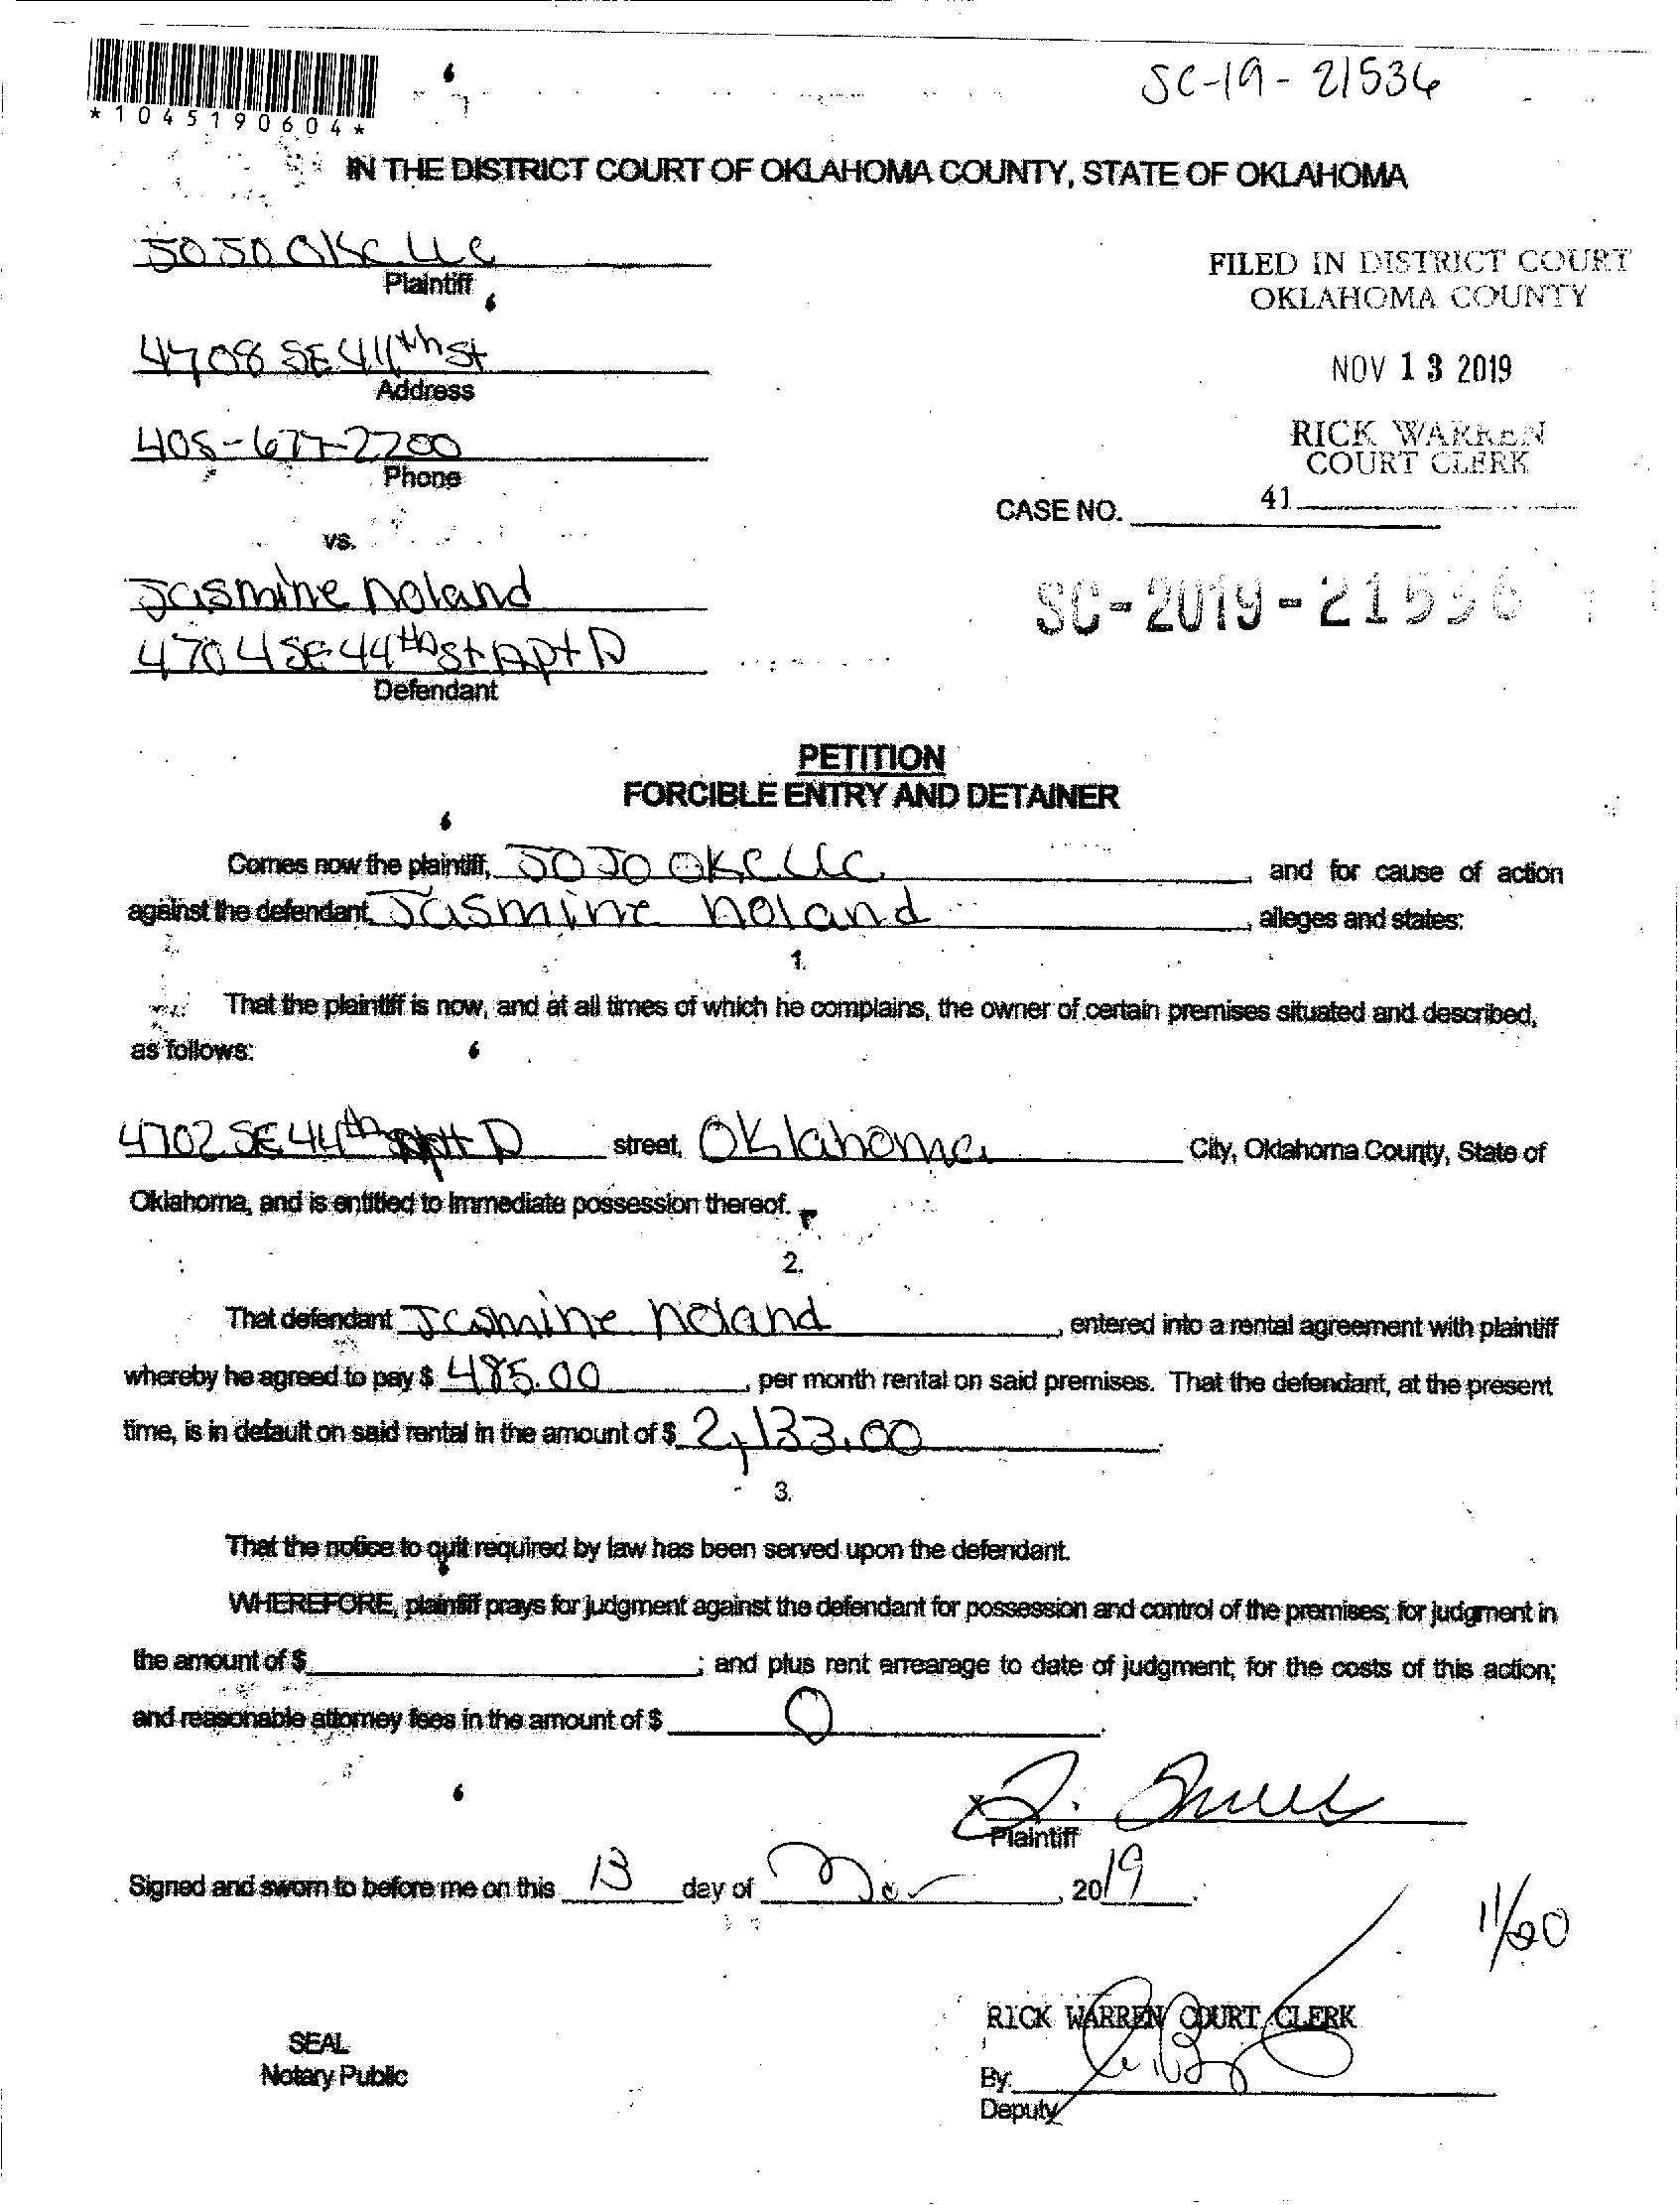 SC-19-21536
*1045190604*
IN THE DISTRICT COURT OF OKLAHOMA COUNTY, STATE OF OKLAHOMA
JOJO OKC LLC
Plaintiff
FILED IN DISTRICT COURT
OKLAHOMA COUNTY
4708 SE 44th St
Address
NOV 13 2019
405-677-2200
Phone
RICK WARREN
COURT CLERK
41
CASE NO.
vs.
Jasmine Noland
SC-2019-21536
4704 SE 44th St Apt D
Defendant
PETITION
FORCIBLE ENTRY AND DETAINER
Comes now the plaintiff, JOJO OKC LLC, and for cause of action
against the defendant, Jasmine Noland, alleges and states:
1.
That the plaintiff is now, and at all times of which he complains, the owner of certain premises situated and described,
as follows:
4702 SE 44th Apt D street, Oklahoma City, Oklahoma County, State of
Oklahoma, and is entitled to immediate possession thereof.
2.
That defendant Jasmine Noland, entered into a rental agreement with plaintiff
whereby he agreed to pay $ 485.00, per month rental on said premises. That the defendant, at the present
time, is in default on said rental in the amount of $ 2,133.00.
3.
That the notice to quit required by law has been served upon the defendant.
WHEREFORE, plaintiff prays for judgment against the defendant for possession and control of the premises; for judgment in
the amount of $ ; and plus rent arrearage to date of judgment; for the costs of this action;
and reasonable attorney fees in the amount of $ 0.
x
Plaintiff
Signed and sworn to before me on this 13 day of Nov, 2019.
11/20
RICK WARREN COURT CLERK
SEAL
Notary Public
By:
Deputy